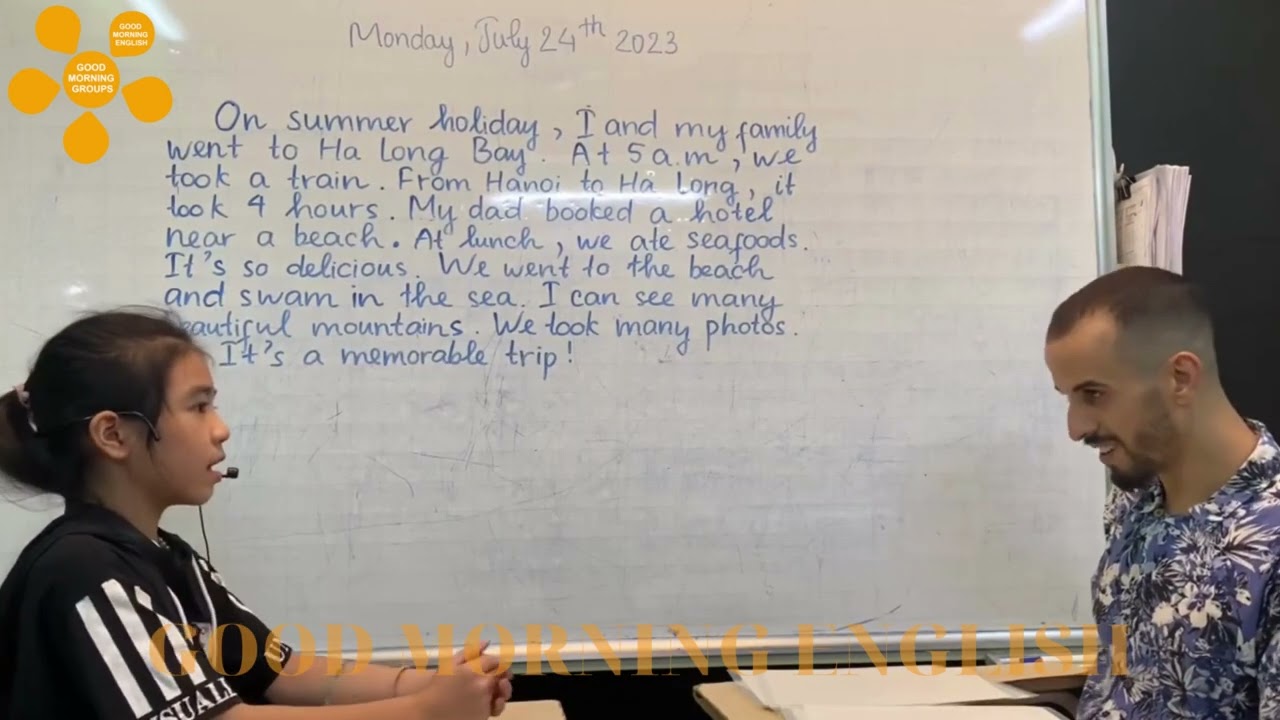 GOOD
MORNING
ENGLISH
GOOD
MORNING
GROUPS
Monday, July 24th 2023
On summer holiday, I and my family
went to Ha Long Bay. At 5 a.m, we
took a train. From Hanoi to Ha Long, it
took 4 hours. My dad booked a hotel
near a beach. At lunch, we ate seafoods.
It's so delicious. We went to the beach
and swam in the sea. I can see many
beautiful mountains. We took many photos.
It's a memorable trip!
GOOD MORNING ENGLISH